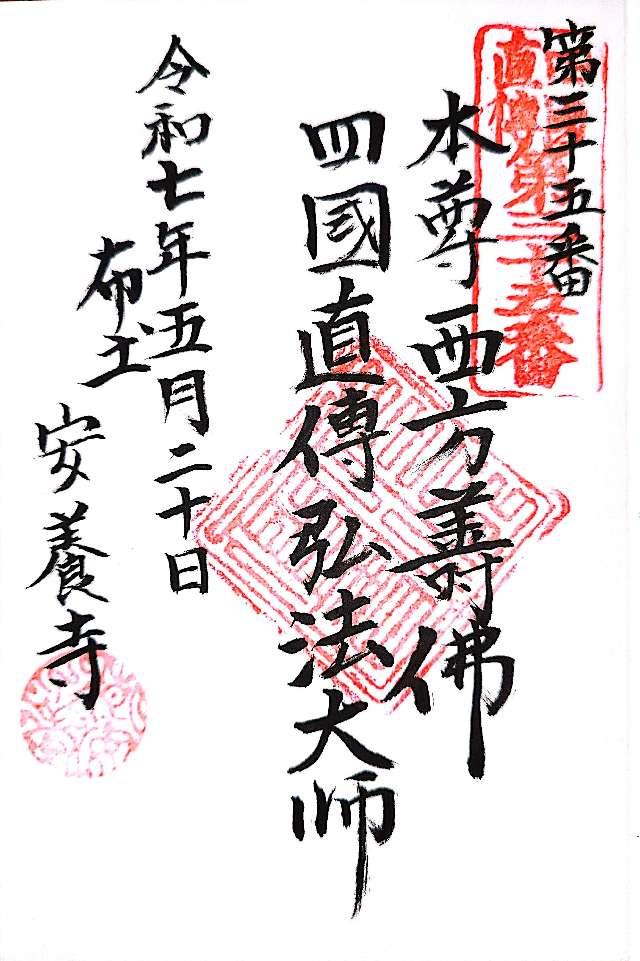 第三十五番
直傳第三十五番
本尊西方壽佛
四國直傳弘法大師
令和七年五月二十日
布土
安養寺